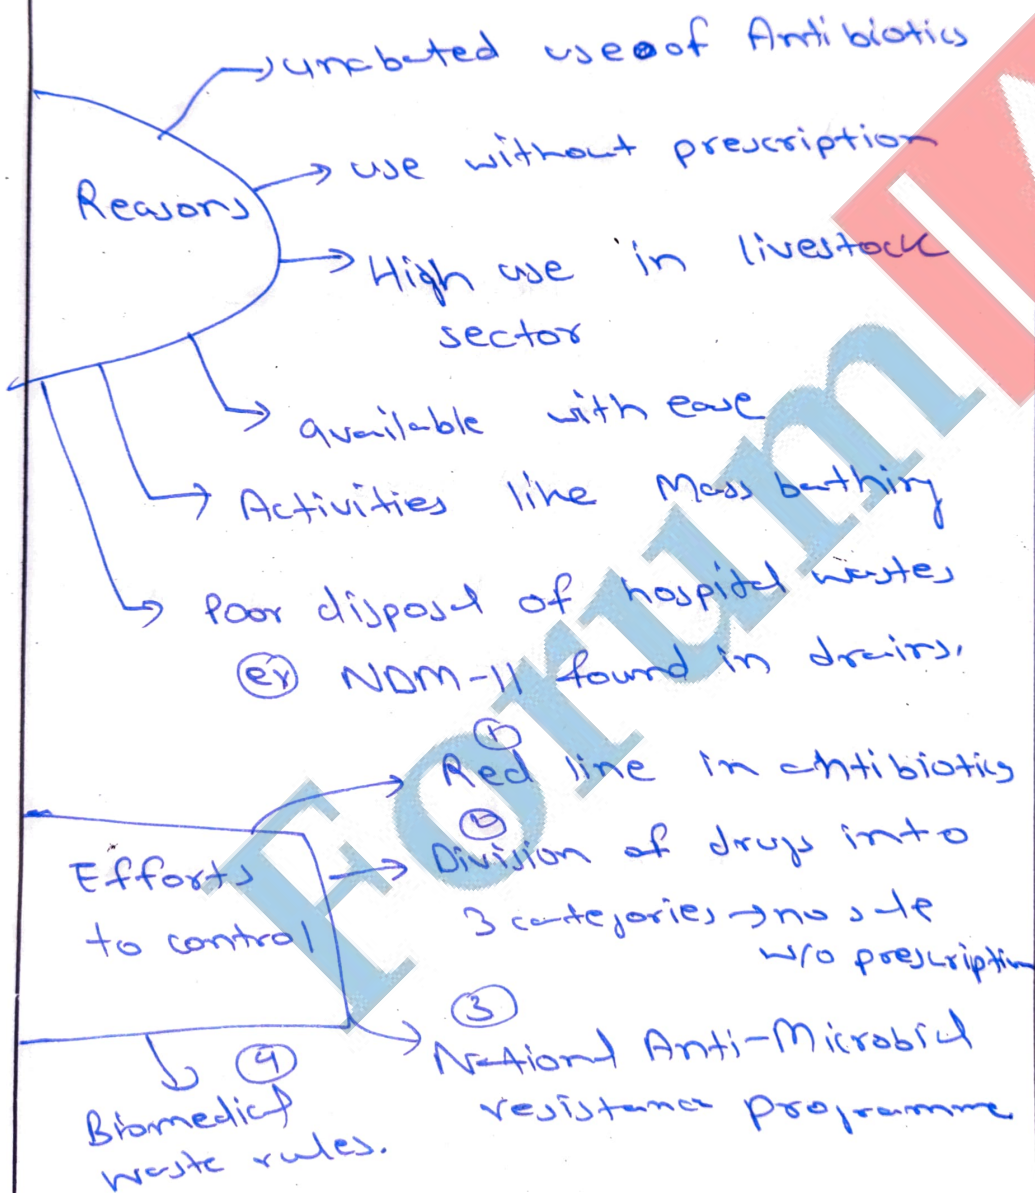 → unabated use of Antibiotics
Reasons
→ use without prescription
→ High use in livestock
sector
→ available with ease
→ Activities like Mass bathing
→ Poor disposal of hospital wastes
ex NDM-11 found in drains.
Efforts
to control
① Red line in antibiotics
② Division of drugs into
3 categories → no sale
w/o prescription
③ National Anti-Microbial
resistance programme
④ Biomedical
waste rules.
Forum